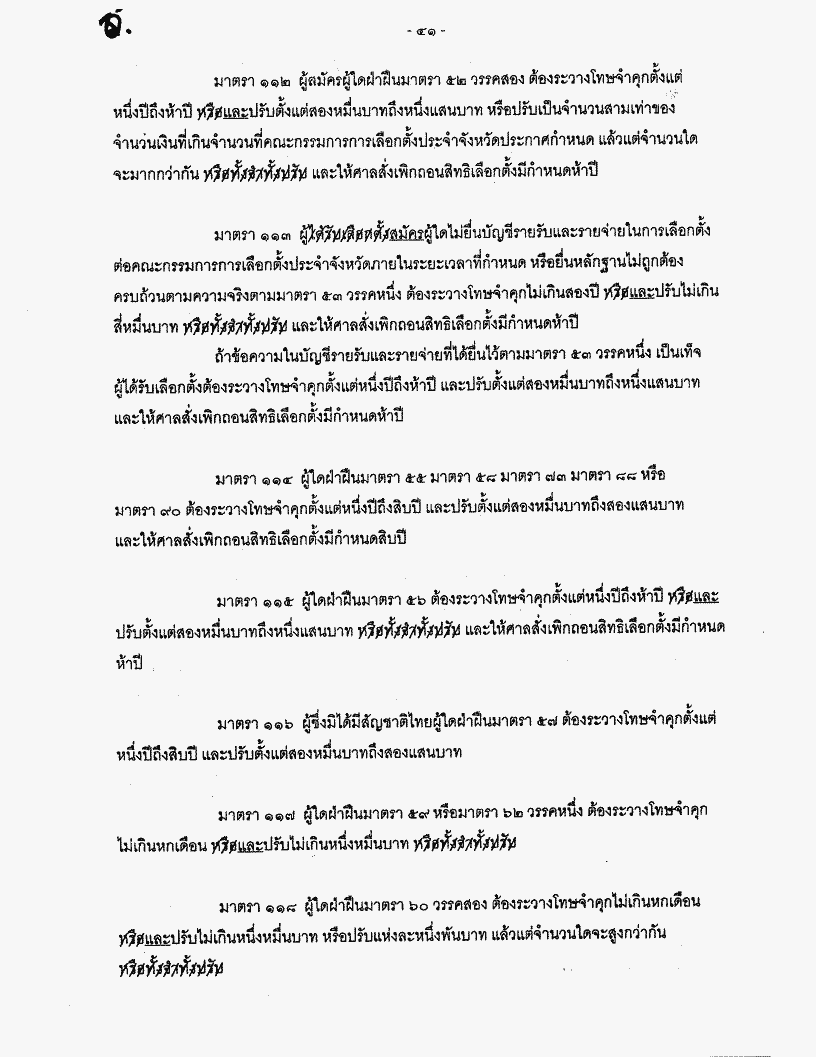 - ๔๑ -
มาตรา ๑๑๒ ผู้สมัครผู้ใดฝ่าฝืนมาตรา ๕๒ วรรคสอง ต้องระวางโทษจำคุกตั้งแต่
หนึ่งปีถึงห้าปี หรือและปรับตั้งแต่สองหมื่นบาทถึงหนึ่งแสนบาท หรือปรับเป็นจำนวนสามเท่าของ
จำนวนเงินที่เกินจำนวนที่คณะกรรมการการเลือกตั้งประจำจังหวัดประกาศกำหนด แล้วแต่จำนวนใด
จะมากกว่ากัน หรือทั้งจำทั้งปรับ และให้ศาลสั่งเพิกถอนสิทธิเลือกตั้งมีกำหนดห้าปี
มาตรา ๑๑๓ ผู้ได้รับเลือกตั้งสมัครผู้ใดไม่ยื่นบัญชีรายรับและรายจ่ายในการเลือกตั้ง
ต่อคณะกรรมการการเลือกตั้งประจำจังหวัดภายในระยะเวลาที่กำหนด หรือยื่นหลักฐานไม่ถูกต้อง
ครบถ้วนตามความจริงตามมาตรา ๕๓ วรรคหนึ่ง ต้องระวางโทษจำคุกไม่เกินสองปี หรือและปรับไม่เกิน
สี่หมื่นบาท หรือทั้งจำทั้งปรับ และให้ศาลสั่งเพิกถอนสิทธิเลือกตั้งมีกำหนดห้าปี
ถ้าข้อความในบัญชีรายรับและรายจ่ายที่ได้ยื่นไว้ตามมาตรา ๕๓ วรรคหนึ่ง เป็นเท็จ
ผู้ได้รับเลือกตั้งต้องระวางโทษจำคุกตั้งแต่หนึ่งปีถึงห้าปี และปรับตั้งแต่สองหมื่นบาทถึงหนึ่งแสนบาท
และให้ศาลสั่งเพิกถอนสิทธิเลือกตั้งมีกำหนดห้าปี
มาตรา ๑๑๔ ผู้ใดฝ่าฝืนมาตรา ๕๕ มาตรา ๕๘ มาตรา ๗๓ มาตรา ๘๘ หรือ
มาตรา ๙๐ ต้องระวางโทษจำคุกตั้งแต่หนึ่งปีถึงสิบปี และปรับตั้งแต่สองหมื่นบาทถึงสองแสนบาท
และให้ศาลสั่งเพิกถอนสิทธิเลือกตั้งมีกำหนดสิบปี
มาตรา ๑๑๕ ผู้ใดฝ่าฝืนมาตรา ๕๖ ต้องระวางโทษจำคุกตั้งแต่หนึ่งปีถึงห้าปี หรือและ
ปรับตั้งแต่สองหมื่นบาทถึงหนึ่งแสนบาท หรือทั้งจำทั้งปรับ และให้ศาลสั่งเพิกถอนสิทธิเลือกตั้งมีกำหนด
ห้าปี
มาตรา ๑๑๖ ผู้ซึ่งมิได้มีสัญชาติไทยผู้ใดฝ่าฝืนมาตรา ๕๗ ต้องระวางโทษจำคุกตั้งแต่
หนึ่งปีถึงสิบปี และปรับตั้งแต่สองหมื่นบาทถึงสองแสนบาท
มาตรา ๑๑๗ ผู้ใดฝ่าฝืนมาตรา ๕๙ หรือมาตรา ๖๒ วรรคหนึ่ง ต้องระวางโทษจำคุก
ไม่เกินหกเดือน หรือและปรับไม่เกินหนึ่งหมื่นบาท หรือทั้งจำทั้งปรับ
มาตรา ๑๑๘ ผู้ใดฝ่าฝืนมาตรา ๖๐ วรรคสอง ต้องระวางโทษจำคุกไม่เกินหกเดือน
หรือและปรับไม่เกินหนึ่งหมื่นบาท หรือปรับแห่งละหนึ่งพันบาท แล้วแต่จำนวนใดจะสูงกว่ากัน
หรือทั้งจำทั้งปรับ